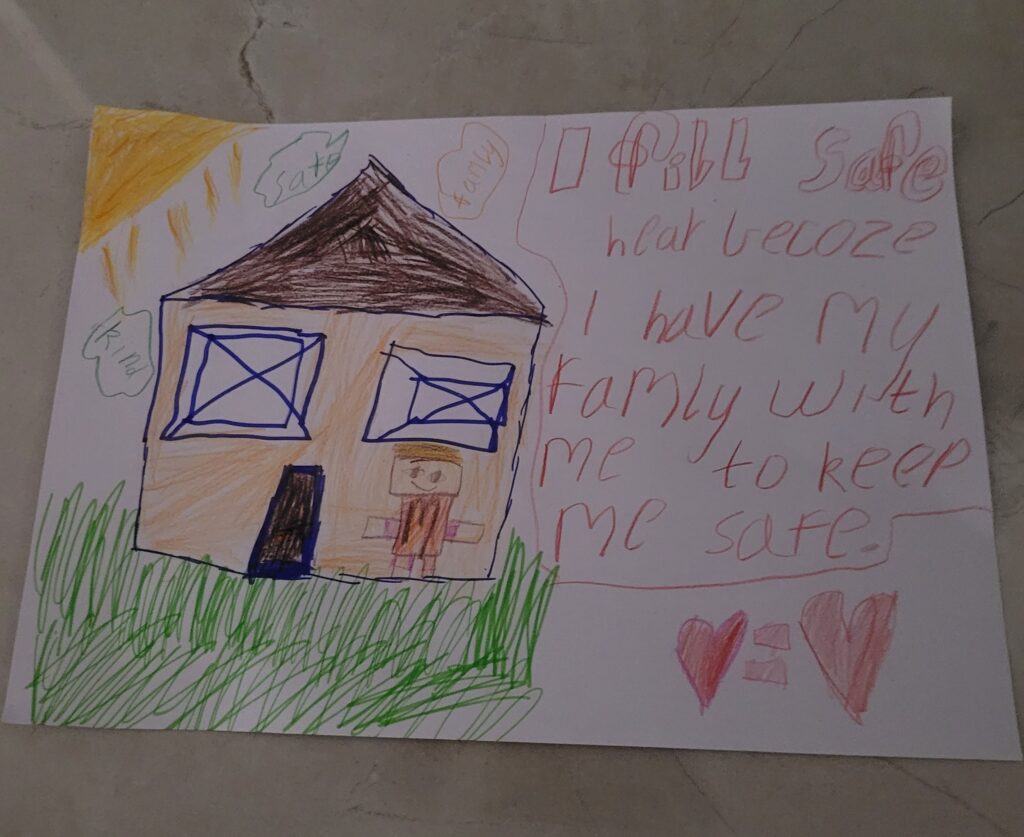 safe
Famly
kind
I fill Safe
hear becoze
I have my
Famly with
me to keep
me safe.
=